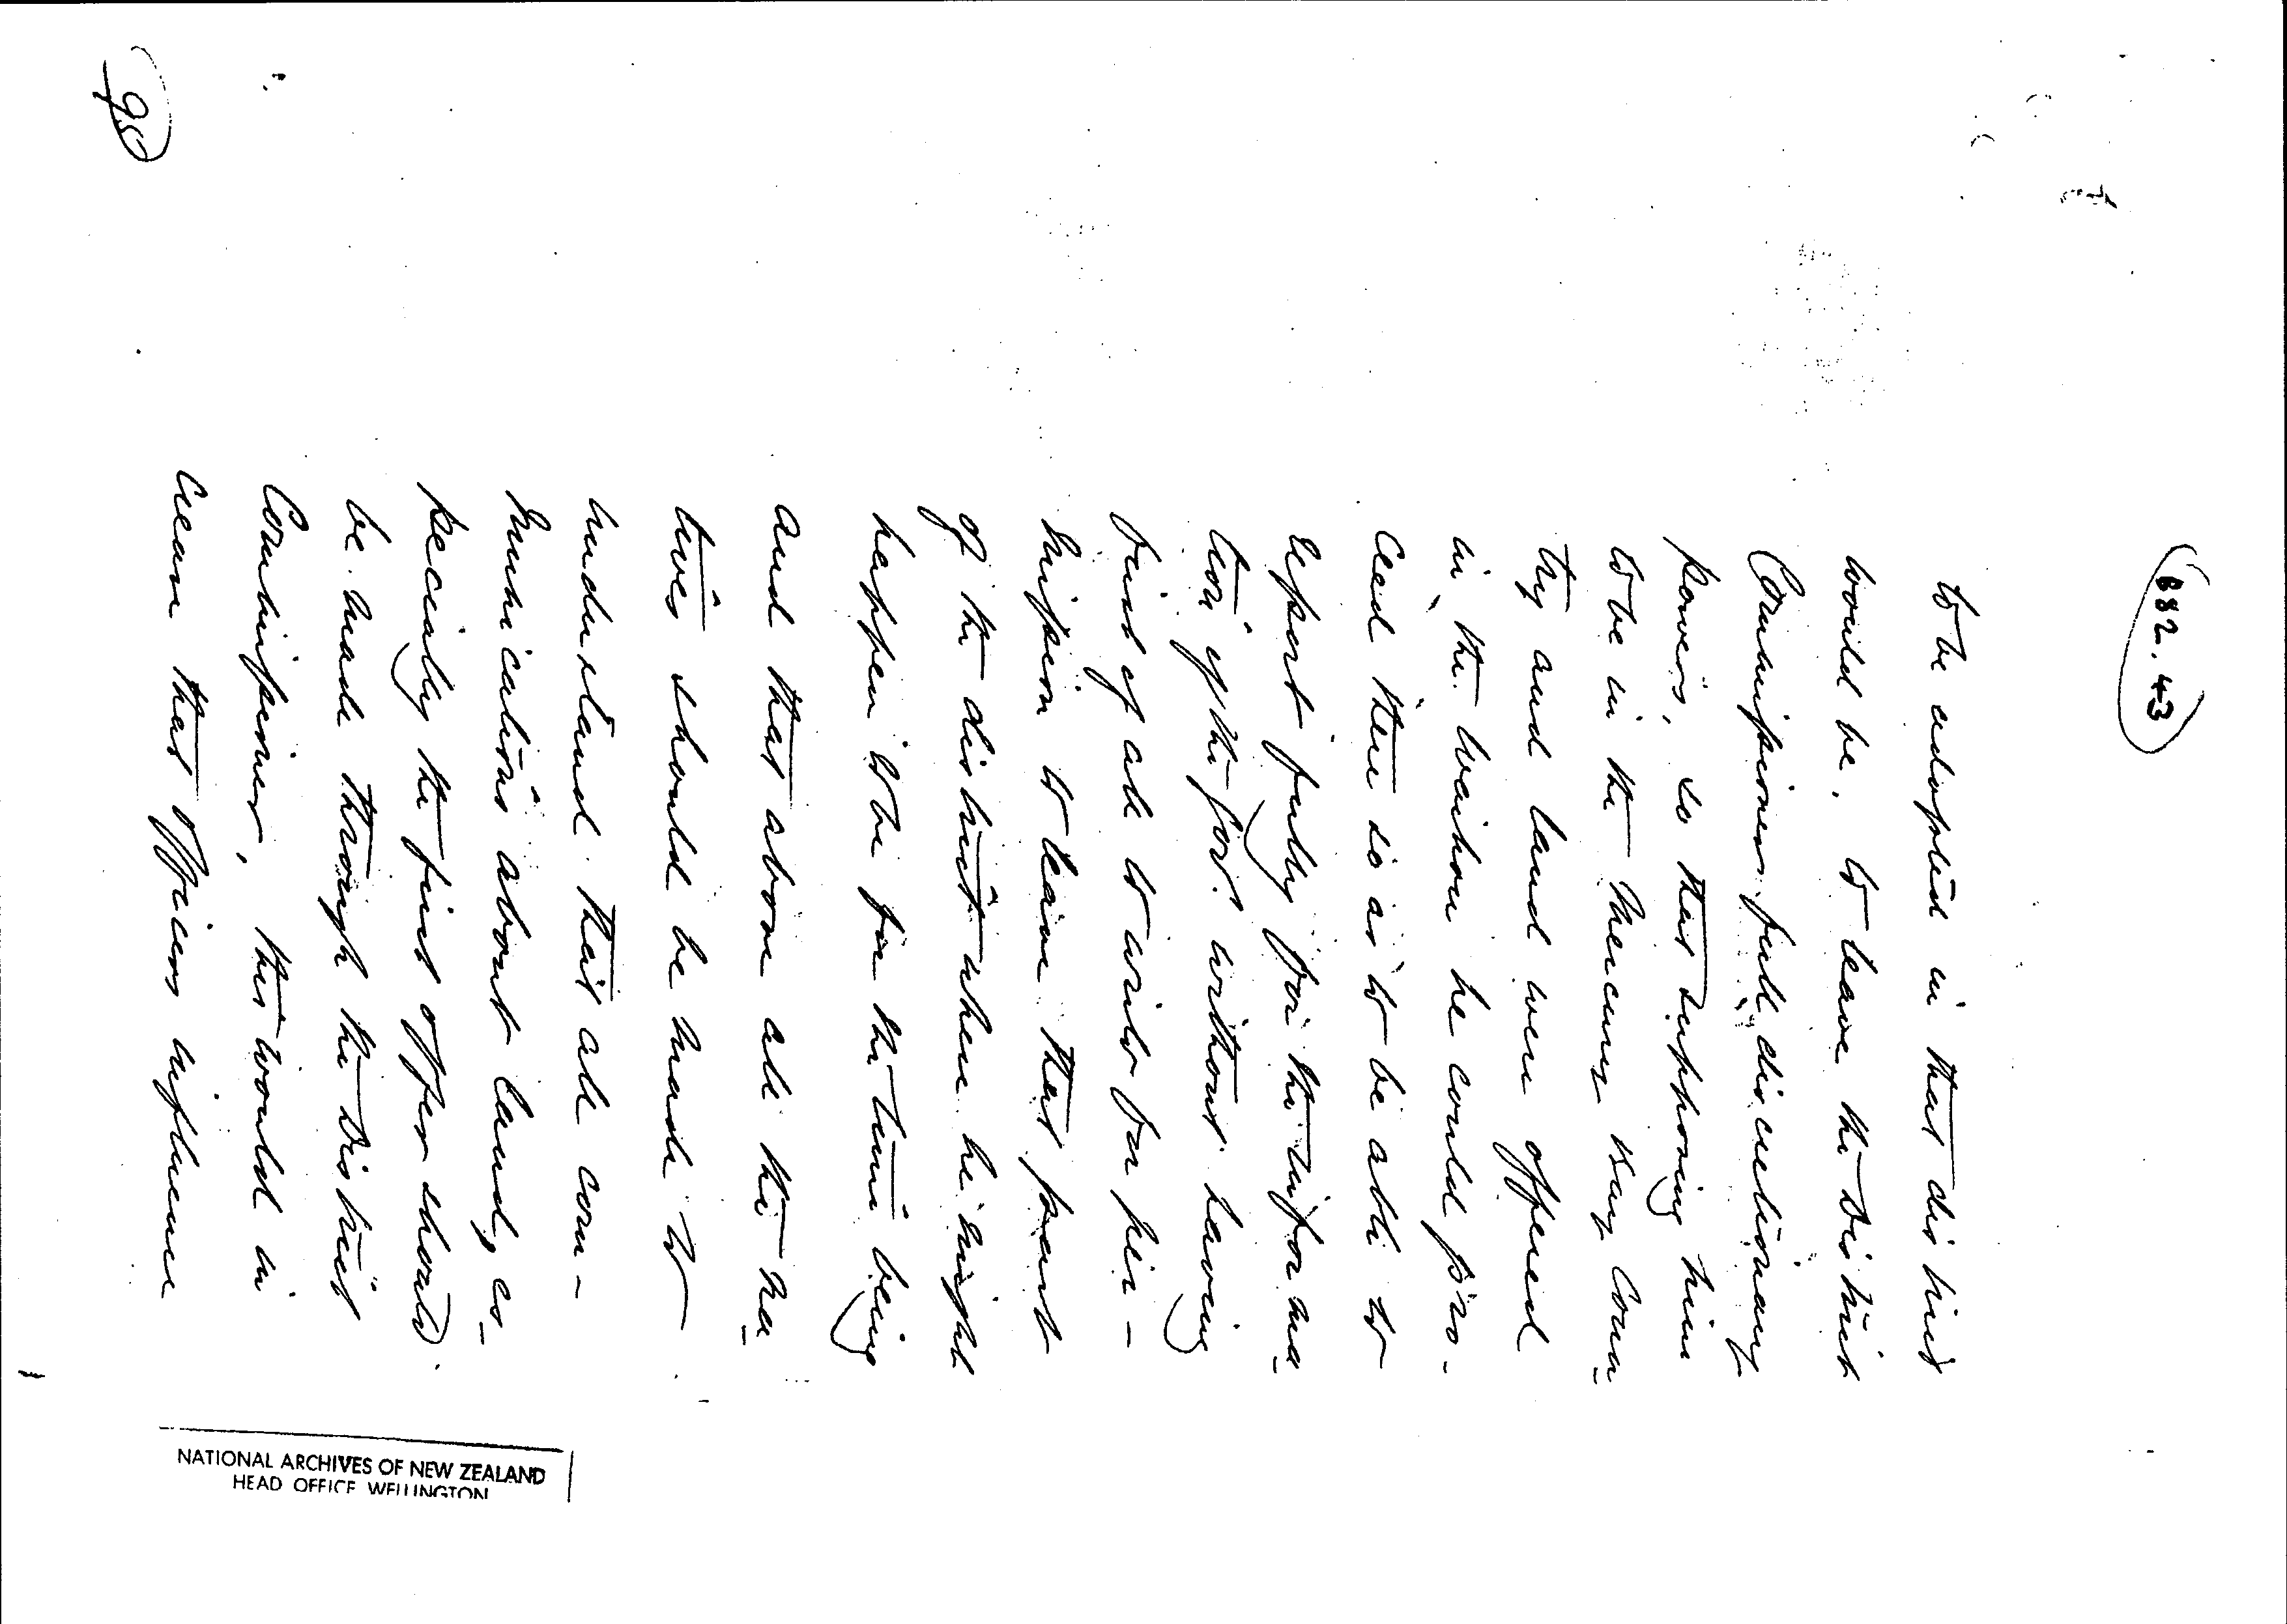 882.43
to be adopted in that district
would be, to leave the District
Commissioner full discretionary
powers, so that supposing him
to be in the Mercury Bay Coun
try and land were offered
in the Waihou he could pro-
ceed there so as to be able to
report fully for the informa
tion of the Govt. without having
first of all to write for per-
mission to leave that part
of the district where he might
happen to be for the time being
and that above all the na
tives should be made to
understand that all com-
munications about land, es-
pecially the first offer should
be made through the District
Commissioner, this would in
crease that officers influence
NATIONAL ARCHIVES OF NEW ZEALAND
HEAD OFFICE WELLINGTON